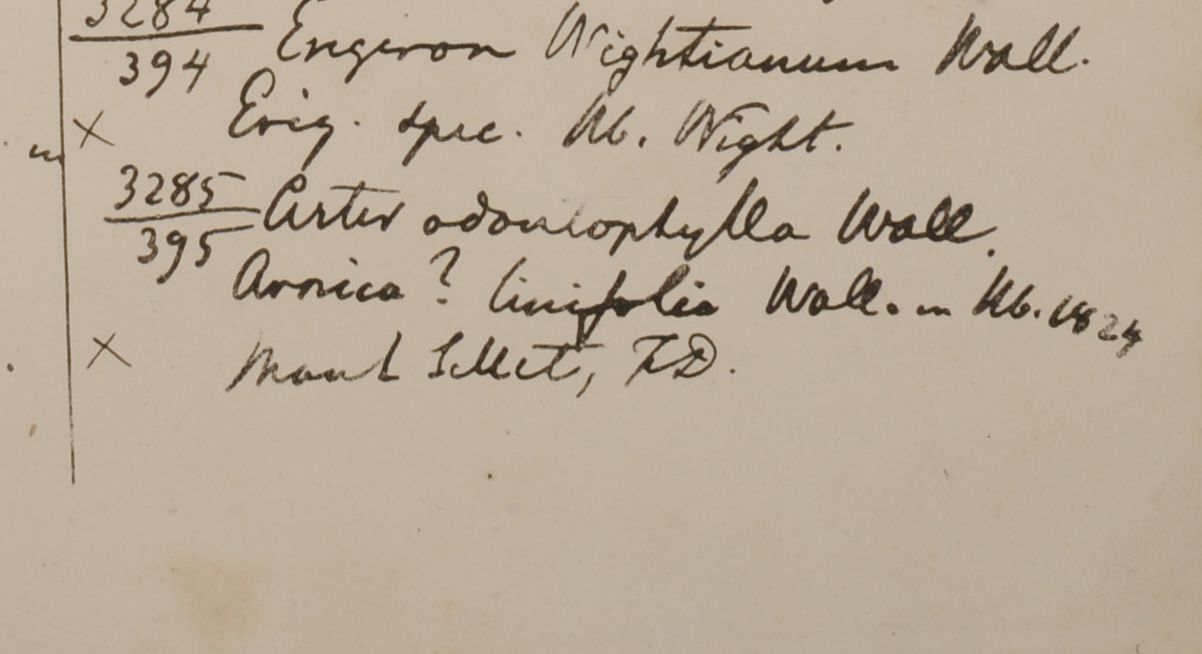 3284
394 Erigeron Wightianum Wall.
× Erig. spec. Hb. Wight.
3285 Aster odontophylla Wall.
395
Arnica? linifolia Wall. in Hb. 1824
× Mont Sillet, F.D.